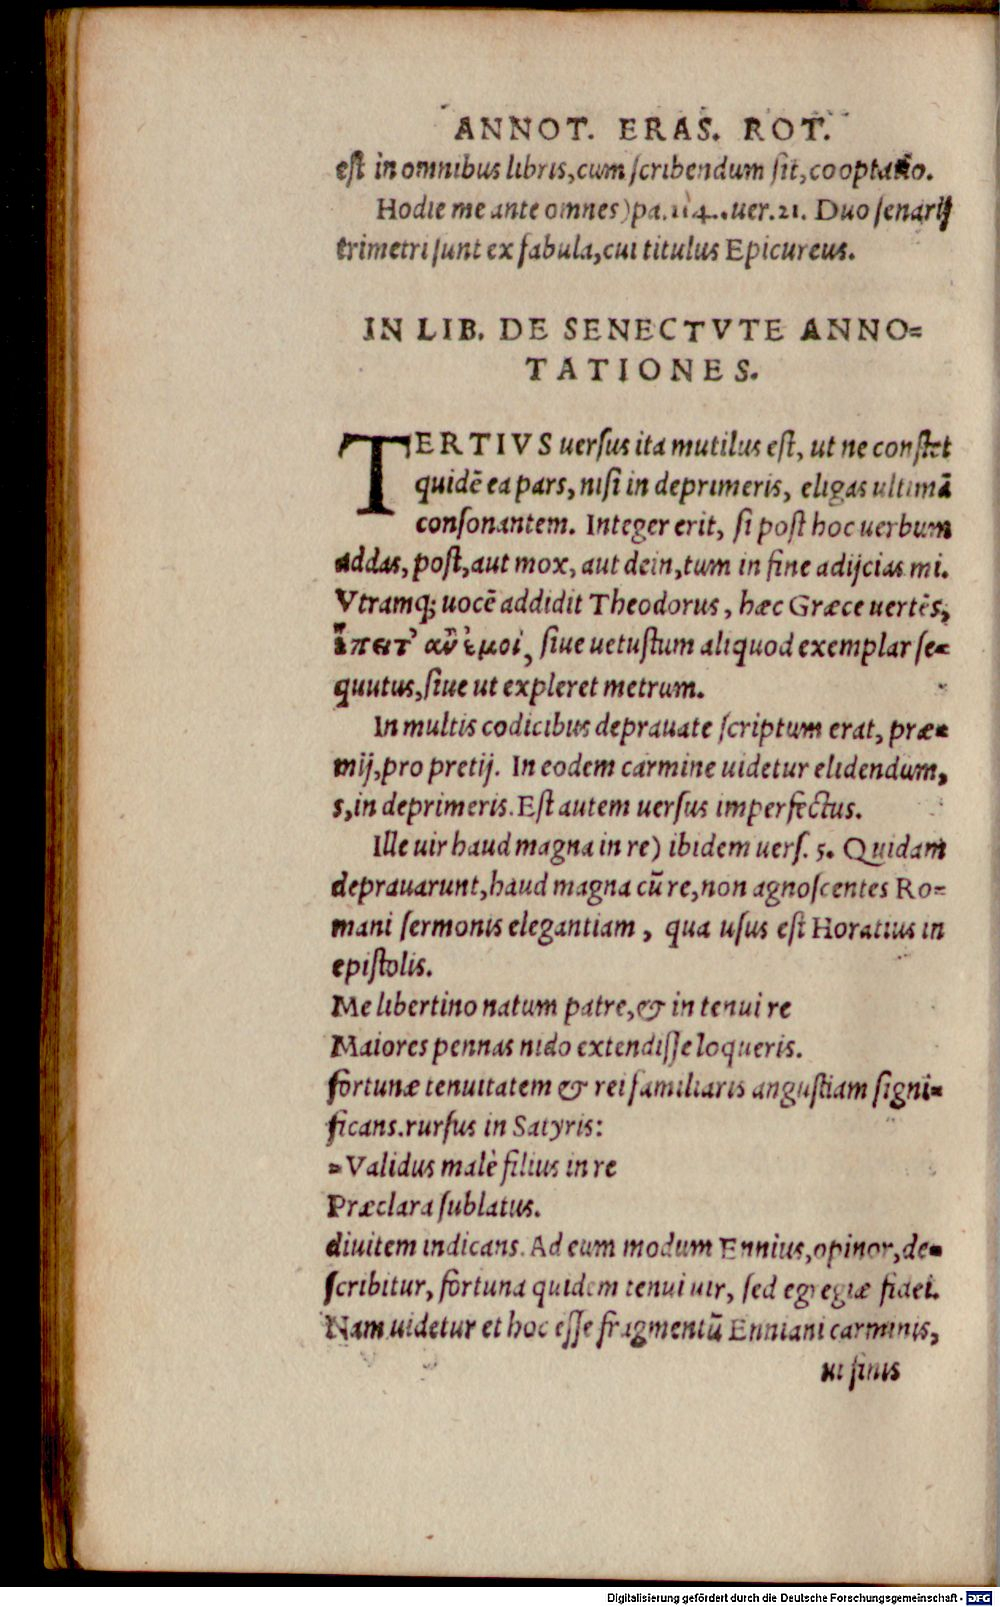 ANNOT. ERAS. ROT.
est in omnibus libris, cum scribendum sit, cooptatio.
Hodie me ante omnes) pa. 114. uer. 21. Duo senarij
trimetri sunt ex fabula, cui titulus Epicureus.
IN LIB. DE SENECTVTE ANNO=
TATIONES.
TERTIVS uersus ita mutilus est, ut ne constet
quidē ea pars, nisi in deprimeris, eligas ultimā
consonantem. Integer erit, si post hoc uerbum
addas, post, aut mox, aut dein, tum in fine adijcias mi.
Vtramq; uocē addidit Theodorus, hæc Græce uertēs,
siue uetustum aliquod exemplar se=
quutus, siue ut expleret metrum.
In multis codicibus deprauate scriptum erat, præ=
mij, pro pretij. In eodem carmine uidetur elidendum,
s, in deprimeris. Est autem uersus imperfectus.
Ille uir haud magna in re) ibidem uers. 5. Quidam
deprauarunt, haud magna cū re, non agnoscentes Ro=
mani sermonis elegantiam, qua usus est Horatius in
epistolis.
Me libertino natum patre, & in tenui re
Maiores pennas nido extendisse loqueris.
fortunæ tenuitatem & rei familiaris angustiam signi=
ficans. rursus in Satyris:
=Validus malè filius in re
Præclara sublatus.
diuitem indicans. Ad eum modum Ennius, opinor, de=
scribitur, fortuna quidem tenui uir, sed egregiæ fidei.
Nam uidetur et hoc esse fragmentū Enniani carminis,
ni finis
Digitalisierung gefördert durch die Deutsche Forschungsgemeinschaft - DFG